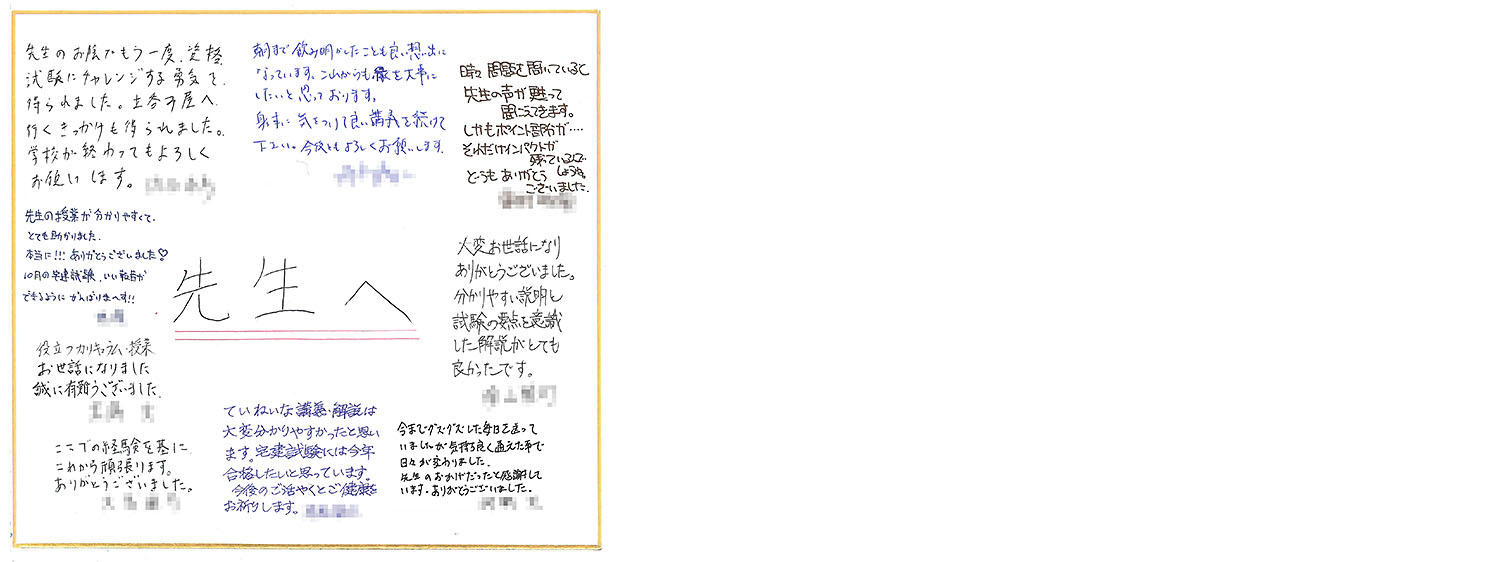 先生のお陰でもう一度、資格
試験にチャレンジする勇気を
得られました。土呑子屋へ
行くきっかけも得られました。
学校が終わってもよろしく
お願いします。
朝まで飲み明かしたことも良い想い出に
なっています。これからも縁を大事に
したいと思っております。
身体に気をつけて良い講義を続けて
下さい。今後ともよろしくお願いします。
時々問題を聞いていると
先生の声が甦って
聞こえてきます。
しかもポイント部分が‥‥
それだけインパクトが
残っているんで
しょうね。
どうもありがとう
ございました。
先生の授業が分かりやすくて、
とても助かりました。
本当に!!!ありがとうございました♡
10月の宅建試験、いい報告が
できるようにがんばりまーす!!
先生へ
大変お世話になり
ありがとうございました。
分かりやすい説明と
試験の要点を意識
した解説がとても
良かったです。
役立つカリキュラム・授業
お世話になりました
誠に有難うございました。
ここでの経験を基に
これから頑張ります。
ありがとうございました。
ていねいな講義・解説は
大変分かりやすかったと思い
ます。宅建試験には今年
合格したいと思っています。
今後のご活やくとご健康を
お祈りします。
今までグズグズした毎日を送って
いましたが気持ち良く通えた事で
日々が変わりました。
先生のおかげだったと感謝して
います。ありがとうございました。